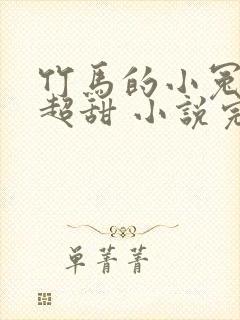 竹馬的小冤
超甜 小説完
单菁菁